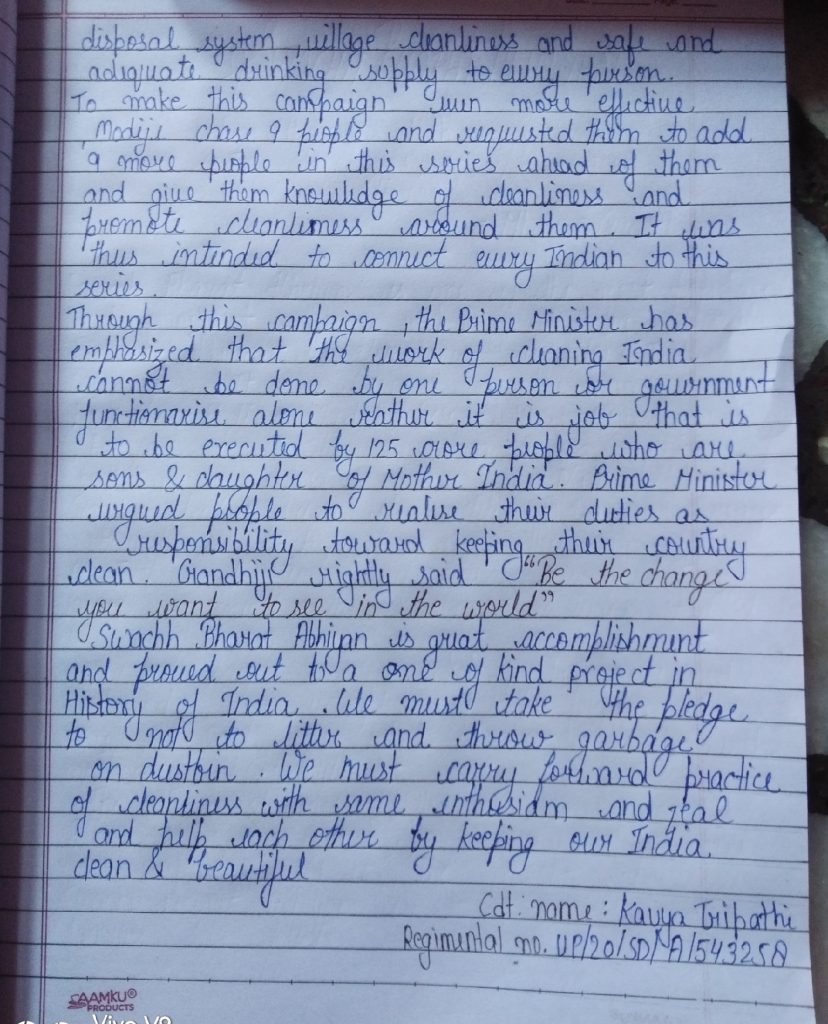 disposal system, village cleanliness and safe and
adiquate drinking supply to every person.
To make this campaign even more effictive
, Modiji chose 9 people and requested them to add
9 more people in this series ahead of them
and give them knowledge of cleanliness and
promote cleanliness around them. It was
thus intended to connect every Indian to this
series.
Through this campaign, the Prime Minister has
emphasized that the work of cleaning India
cannot be done by one person or government
functionarise alone rather it is job that is
to be executed by 125 crore people who are
sons & daughter of Mother India. Prime Minister
urgued people to realise their duties as
responsibility toward keeping their country
clean. Gandhiji rightly said "Be the change
you want to see in the world"
Swachh Bharat Abhiyan is great accomplishment
and proved out to a one of kind project in
History of India. We must take the pledge
to not to litter and throw garbage
on dustbin. We must carry forward practice
of cleanliness with same and zeal
and help each other by keeping our India
clean & beautiful
Cdt. name: Kavya Tripathi
Regimental no. UP/20/SD/ A/543258
SAAMKU®
PRODUCTS